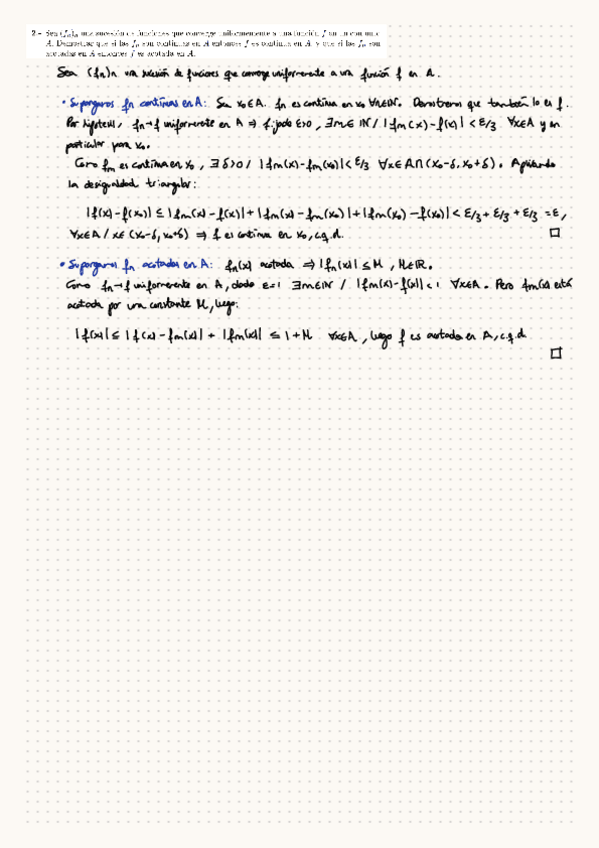 2.- Sea (fn)n una sucesión de funciones que converge uniformemente a una función f en un conjunto
A. Demostrar que si las fn son continuas en A entonces f es continua en A, y que si las fn son
acotadas en A entonces f es acotada en A.
Sea (fn)n una sucesión de funciones que converge uniformemente a una función f en A.
• Supongamos fn continuas en A: Sea x₀∈A. fn es continua en x₀ ∀n∈ℕ. Demostremos que también lo es f.
Por hipótesis, fn→f uniformemente en A ⇒ fijado ε>0, ∃m∈ℕ / |fm(x)-f(x)| < ε/3 ∀x∈A y en
particular para x₀.
Como fm es continua en x₀, ∃δ>0 / |fm(x)-fm(x₀)| < ε/3 ∀x∈A∩(x₀-δ, x₀+δ). Aplicando
la desigualdad triangular:
|f(x)-f(x₀)| ≤ |fm(x)-f(x)| + |fm(x)-fm(x₀)| + |fm(x₀)-f(x₀)| < ε/3 + ε/3 + ε/3 = ε,
∀x∈A / x∈(x₀-δ, x₀+δ) ⇒ f es continua en x₀, c.q.d. □
• Supongamos fn acotadas en A: fn(x) acotada ⇒ |fn(x)| ≤ M, M∈ℝ.
Como fn→f uniformemente en A, dado ε=1 ∃m∈ℕ / |fm(x)-f(x)| < 1 ∀x∈A. Pero fm(x) está
acotada por una constante M, luego:
|f(x)| ≤ |f(x)-fm(x)| + |fm(x)| ≤ 1+M ∀x∈A, luego f es acotada en A, c.q.d.
□